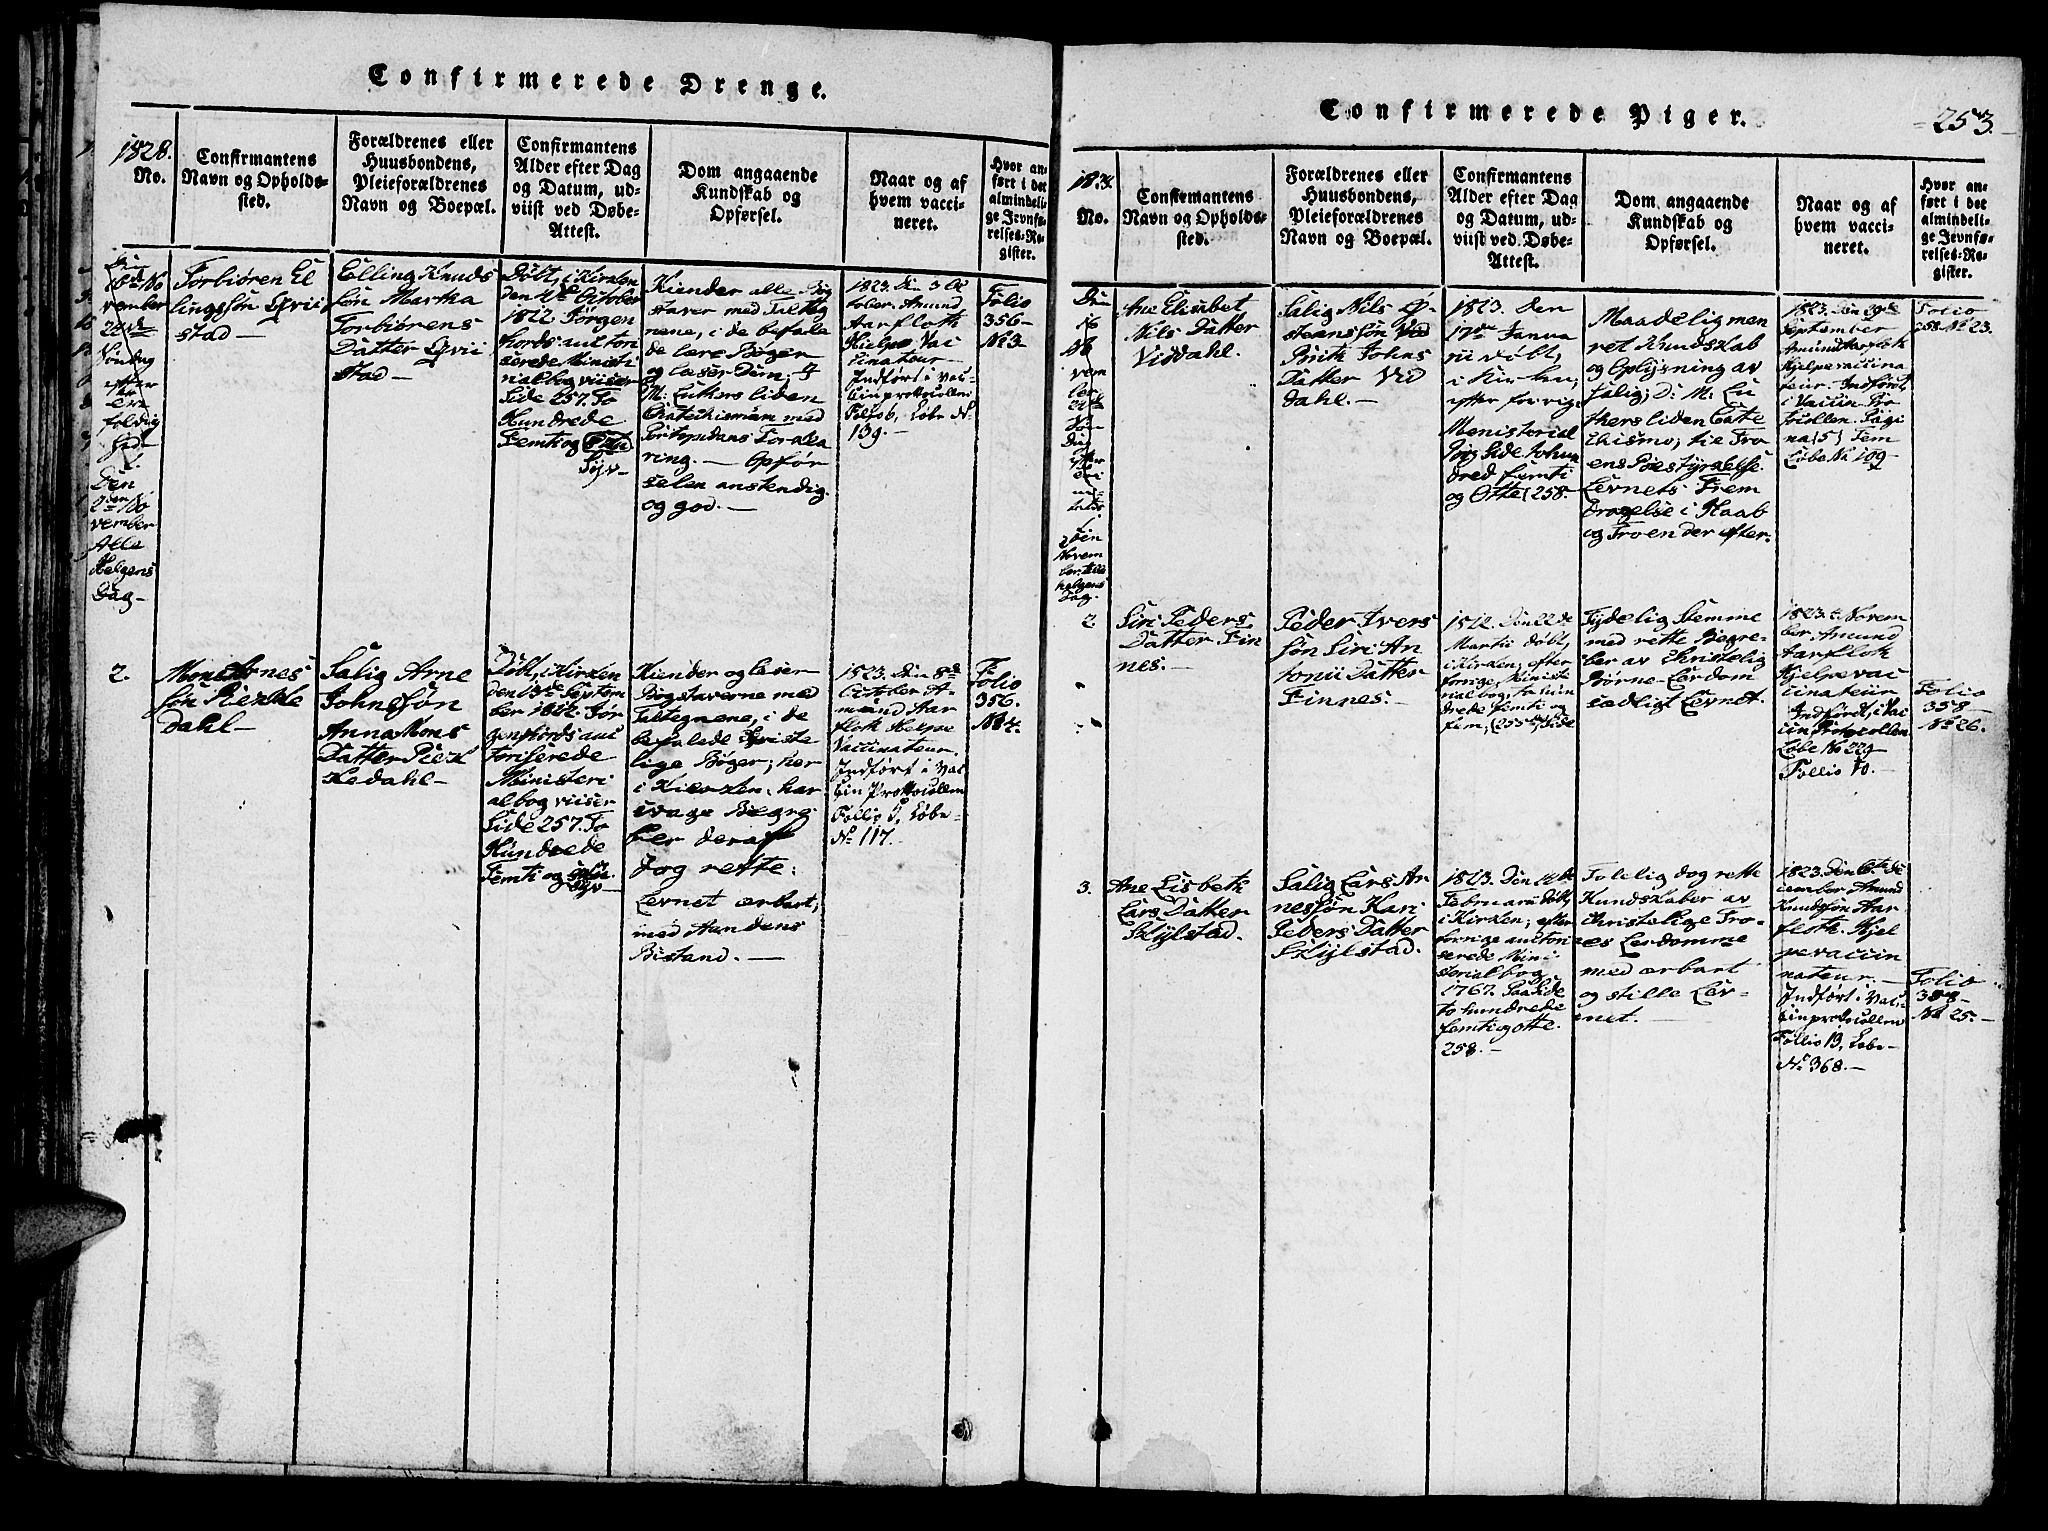 Confirmerede Drenge.
1828.
No.
Confirmantens
Navn og Opholds-
sted.
Forældrenes eller
Huusbondens,
Pleieforældrenes
Navn og Boepæl.
Confirmantens
Alder efter Dag
og Datum, ud-
viist ved Døbe-
Attest.
Dom angaaende
Kundskab og
Opførsel.
Naar og af
hvem vacci-
neret.
Hvor an-
ført i det
almindeli-
ge Jevnfø-
relses-Re-
gister.
vember
Søndag
efter
Den
2den No
vember
Alle
Helgens
Dag-
Torbiøren El
lingssøn
stad-
Elling Knuds
søn Martha
Torbiørens
Datter
stad-
Døbt, i Kirken
den 4de October
1812. Jørgen
fjords autori
serede Ministe
rialbog viiser
Side 257. To
Hundrede
Femti og
Syv-
Kiender alle Bog
staver med Tilteg
nene, i de befale
de lære Bøger
og læser Dem;
M: Luthers liden
Chatechismum med
Pontopidans Forkla
ring.- Opfør
selen anstendig
og god.-
1823. Den 3 Oc
tober. Amund
Aarfloth
Hielpe Vac
cinateur.
Indført i Vac-
cinprotocollen
Løbe No
139.-
Folio
356-
No 3.
2.
Mons Arnes
søn Riekke
dahl-
Salig Arne
Johnssøn
Anna Mons
Datter Riek
kedahl-
Døbt, i Kirken
den 13de Septem
ber 1812. Jør
genfjords aut
toriserede
Ministeri
albog viiser
Side 257. To
Hundrede
Femti og
syv-
Kiender og leser
Bogstaverne med
Tiltegnene, i de
befalede Christe
lige Bøger; her
i Kierken, har
svage Begre
ber deraf
dog rette.
Levnet ærbart,
med Aandens
Bistand.-
1823. Den 8de
October A-
mund Aar
floth Hielpe
Vaccinateur.
Indført i Vac
cin Protocollen
Follio 5, Løbe-
No 117.-
Folio
356.
No 4.
Confirmerede Piger.
253.
No.
Confirmantens
Navn og Opholds-
sted.
Forældrenes eller
Huusbondens,
Pleieforældrenes
Navn og Boepæl.
Confirmantens
Alder efter Dag
og Datum, ud-
viist ved Døbe-
Attest.
Dom angaaende
Kundskab og
Opførsel.
Naar og af
hvem vacci-
neret.
Hvor an-
ført i det
almindeli-
ge Jevnfø-
relses-Re-
gister.
Ane Elisabet
Nils Datter
Viddahl.
Salig Nils Ø-
steensøn
Brith Johns
Datter Vid
dahl.-
1813. Den
17de Janua
rii døbt,
i Kirken,
efter forrige
Menisterial
bog Side tohun
dred femti
og Otte (258.
Maadelig men
ret Kundskab
og Oplysning av
Salig, D: M: Lu
thers liden Cate
chismo; tie Tro
ens Poestyrkelse
Levnets Frem
dragelse i Haab
og Troen derefter.
1823. Den 29de
September
Amund Aarfloth
Hjelpevaccina
teur. Indført
i Vaccin Pro
tocollen. Pagi
na (5) Fem
Løbe No 109
Folio
258. No 23.
2.
Siri Peders
Datter Fin
nes.-
Peder Ivers
søn Siri An
tonii Datter
Finnes.-
1812. Den 22de
Martii døbt,
i Kirken; efter
forrige, Ministe
rialbog, to hun
drede femti og
fem; (255
Tydelig Stemme
med rette Begre-
ber av Christelig
Børne-Lerdom
sædligt Levnet.
ber. Amund
Aarfloth
Hjelpevac
cinateur
Indført, i Vac
cin Protocollen
Løbe No 229
Follio 10.-
Folio
358-
No 26.
3.
Ane Lisbeth
Lars Datter
Skylstad.
Salig Lars Ar
nessøn Kari
Peders Datter
Skylstad.
1813. Den 14de
Februarii døbt,
i Kirken; efter
forrige auctori
serede Mini
sterialbog
1767. Paa Side
to hundrede
femti og otte.
258.-
Tolelig dog rette
Kundskaber av
Christelige Tro-
es Lerdomme
med ærbart
og stille Lev-
net.-
1823. Den 6te De
cember Amund
Knudssøn Aar
floth. Hjel
pevaccin
nateur.-
Indført i Vac-
cinprotocollen
Follio 13, Løbe-
No 368.-
Folio
358-
No 25.-